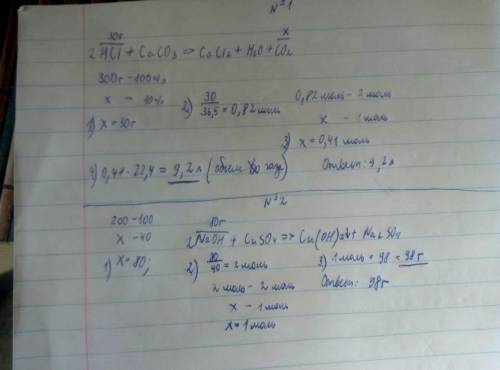 №1
30г x
2HCl + CaCO3 => CaCl2 + H2O + CO2
300г - 100%
x - 10%
1) x = 30г
2) 30/36,5 = 0,82 моль
0,82 моль - 2 моль
x - 1 моль
3) x = 0,41 моль
4) 0,41 · 22,4 = 9,2 л (объем
Ответ: 9,2 л
№2
200 - 100
x - 40
1) x = 80;
80г
2NaOH + CuSO4 => Cu(OH)2↓ + Na2SO4
2) 80/40 = 2 моль
2 моль - 2 моль
x - 1 моль
x = 1 моль
3) 1 моль · 98 = 98 г
Ответ: 98 г